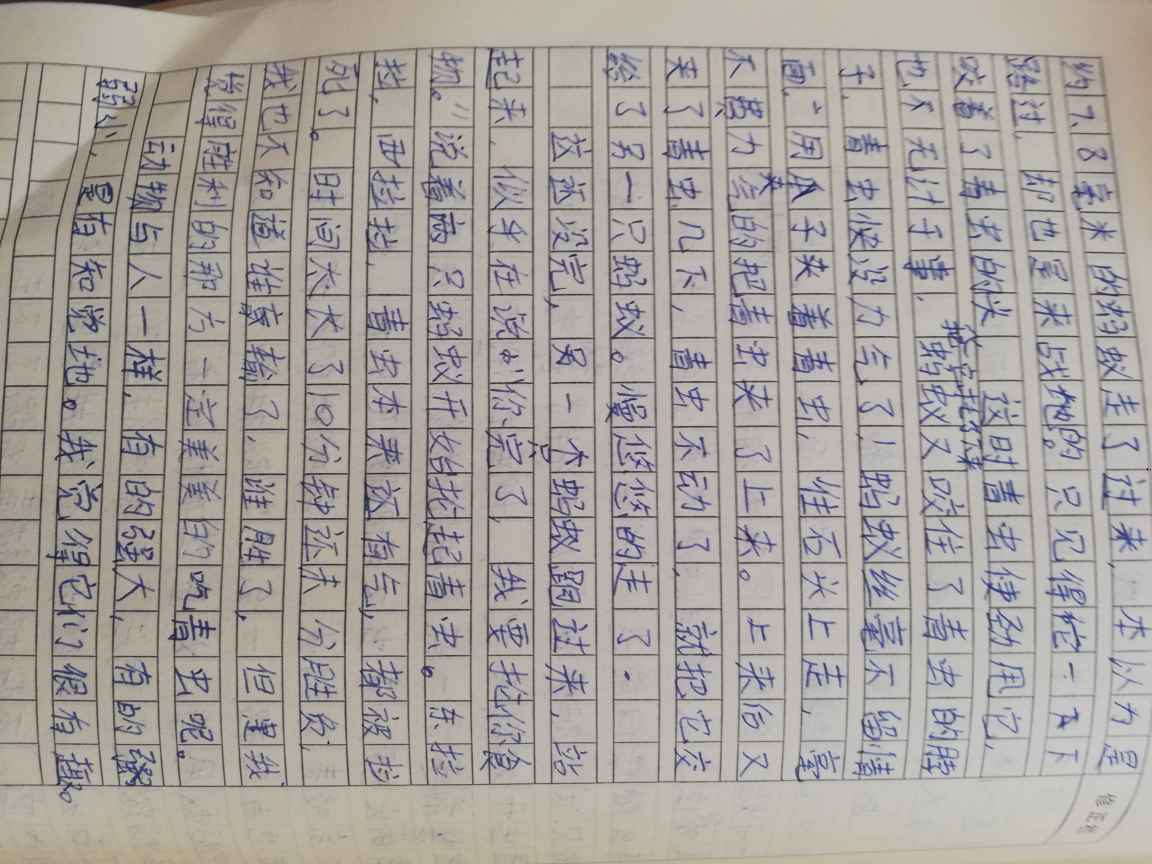 约7、8毫米的蚂蚁走了过来，本以为是
路过，却也是来战她的。只见得蛇一口不
咬着了青虫的头 这时青虫使劲甩它，
也不无计于事，蚂蚁又咬住了青虫的脖
子，青虫快没力气了！蚂蚁丝毫不留情
面，用爪子夹着青虫，往石头上走，毫
不费力气的把青虫夹了上来。上来后又
夹了青虫几下，青虫不动了，就把它交
给了另一只蚂蚁。慢悠悠的走了.
这还没完，另一个蚂蚁闯过来，站
起来，似乎在说："你完了，我要把你食
物。"说着两只蚂蚁开始拉起青虫。东拉
拉，西拉拉，青虫本来还有气，都被拉
死了。时间大大了10分钟还未分胜负，
我也不知道谁赢输了，谁胜了，但是我
觉得胜利的那方一定美美的吃青虫呢。
动物与人一样，有的强大，有的弱
弱小，是有知觉地。我觉得它们很有趣。
修正栏